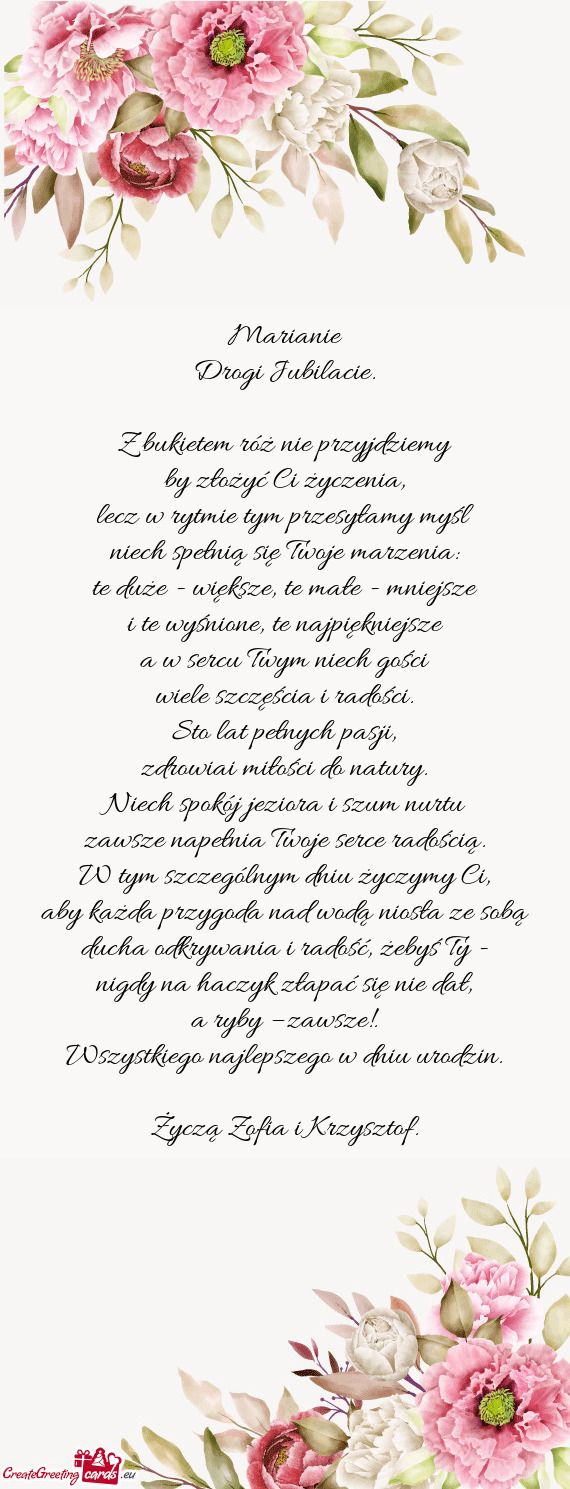 Marianie
Drogi Jubilacie.
Z bukietem róż nie przyjdziemy
by złożyć Ci życzenia,
lecz w rytmie tym przesyłamy myśl
niech spełnią się Twoje marzenia:
te duże - większe, te małe - mniejsze
i te wyśnione, te najpiękniejsze
a w sercu Twym niech gości
wiele szczęścia i radości.
Sto lat pełnych pasji,
zdrowiai miłości do natury.
Niech spokój jeziora i szum nurtu
zawsze napełnia Twoje serce radością.
W tym szczególnym dniu życzymy Ci,
aby każda przygoda nad wodą niosła ze sobą
ducha odkrywania i radość, żebyś Ty -
nigdy na haczyk złapać się nie dał,
a ryby – zawsze!.
Wszystkiego najlepszego w dniu urodzin.
Życzą Zofia i Krzysztof.
CreateGreetingcards.eu